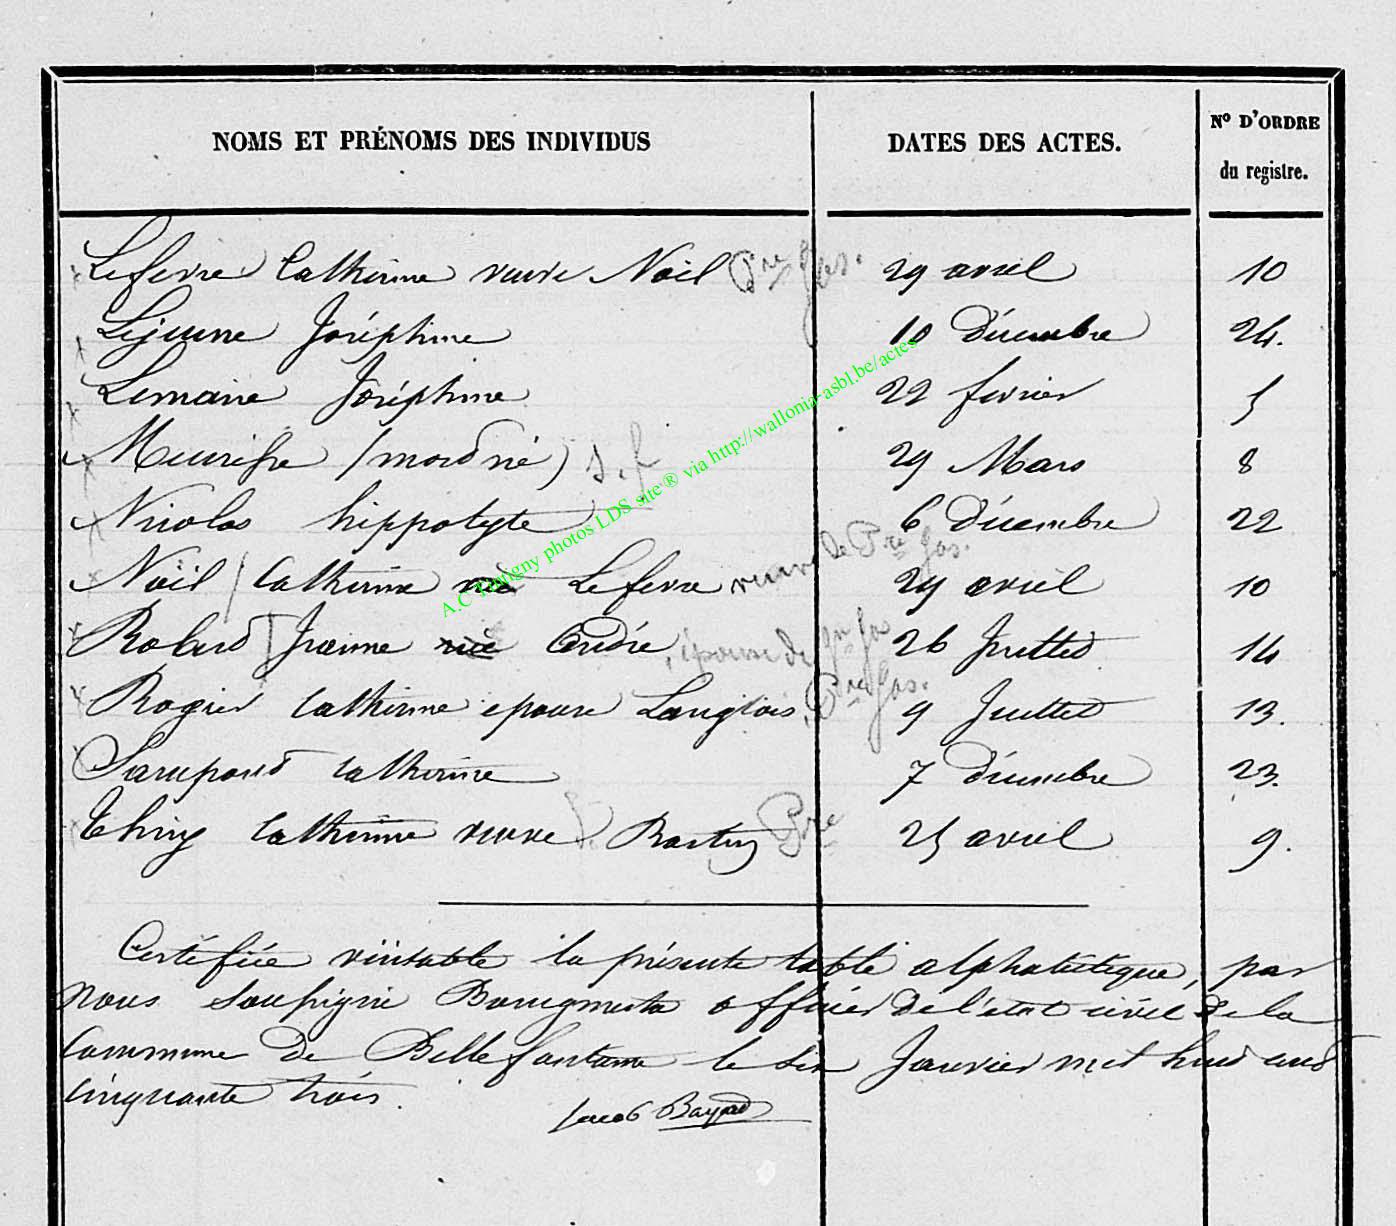 NOMS ET PRÉNOMS DES INDIVIDUS DATES DES ACTES. N° D'ORDRE du registre.
Lefevre Catherine veuve Noël Pre Jos. 29 avril 10
Lejeune Joséphine 10 Décembre 24.
Lemaire Joséphine 22 fevrier 5
Meurisse (mord né) s.f 29 Mars 8
Nicolas hippolyte 6 Décembre 22
Noël / Catherine Lefevre veuve de Pre Jos. 29 avril 10
Robert Jeanne André, épouse de Jn Jo 26 Juillet 14
Rogier Catherine epouse Langlois, Pre Jos. 9 Juillet 13.
Catherine 7 décembre 23.
Thiry Catherine veuve Pre 25 avril 9.
Certifiée véritable la présente table alphabétique, par
nous soussigné Bourgmestre officier de l'état civil de la
Commune de Bellefontaine le six Janvier mil huit cent
cinquante trois.
Jacob Bayard
A.C Tintigny photos LDS site ® via http://wallonia-asbl.be/actes